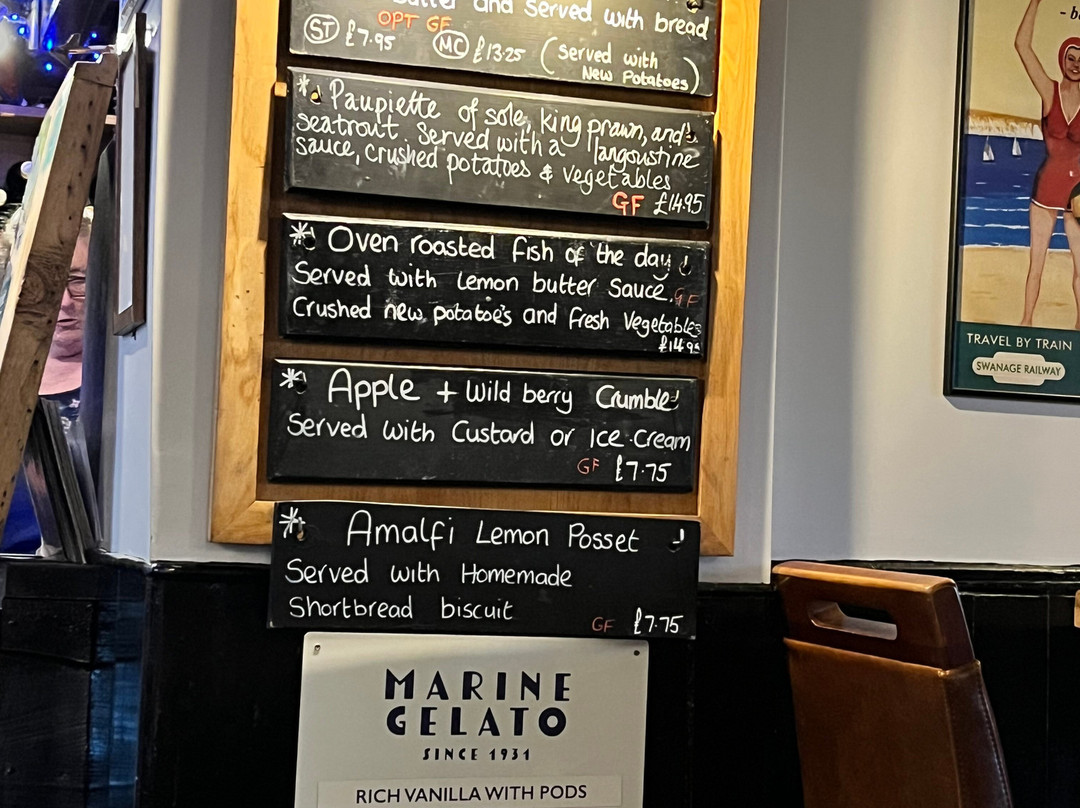 butter and served with bread
OPT GF
ST £7.95 MC £13.25 (served with
New Potatoes)
* Paupiette of sole, king prawn, and
seatrout. Served with a langoustine
sauce, crushed potatoes & vegetables
GF £14.95
* Oven roasted fish of the day
Served with Lemon butter Sauce. GF
Crushed new potatoe's and fresh Vegetables
£14.95
* Apple + Wild berry Crumble
Served with Custard or Ice Cream
GF £7.75
* Amalfi Lemon Posset
Served with Homemade
Shortbread biscuit
GF £7.75
MARINE
GELATO
SINCE 1931
RICH VANILLA WITH PODS
TRAVEL BY TRAIN
SWANAGE RAILWAY